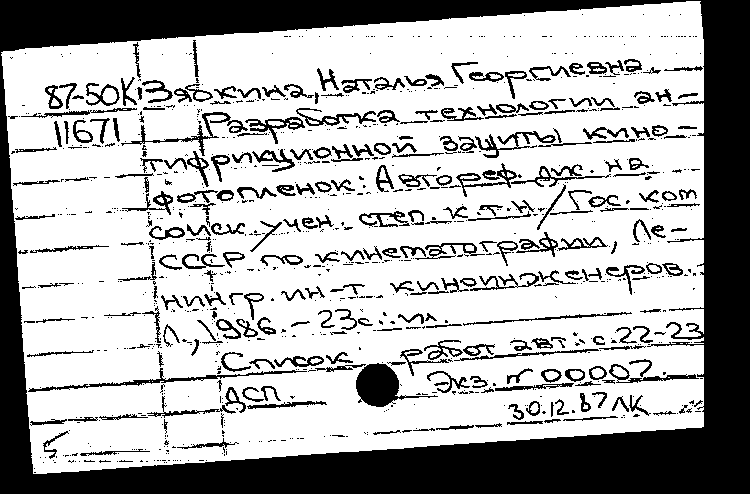 87-50К Зябкина, Наталья Георгиевна.
11671 Разработка технологии ан-
тифрикционной защиты кино-
фотопленок: Автореф. дис. на
соиск. учен. степ. к.т.н. / Гос. ком
СССР по кинематографии, Ле-
нингр. ин-т киноинженеров.
Л., 1986. - 23с.: ил.
Список работ авт.: с. 22-23
ДСП. Экз. № 00007.
30.12.87 ЛК
5